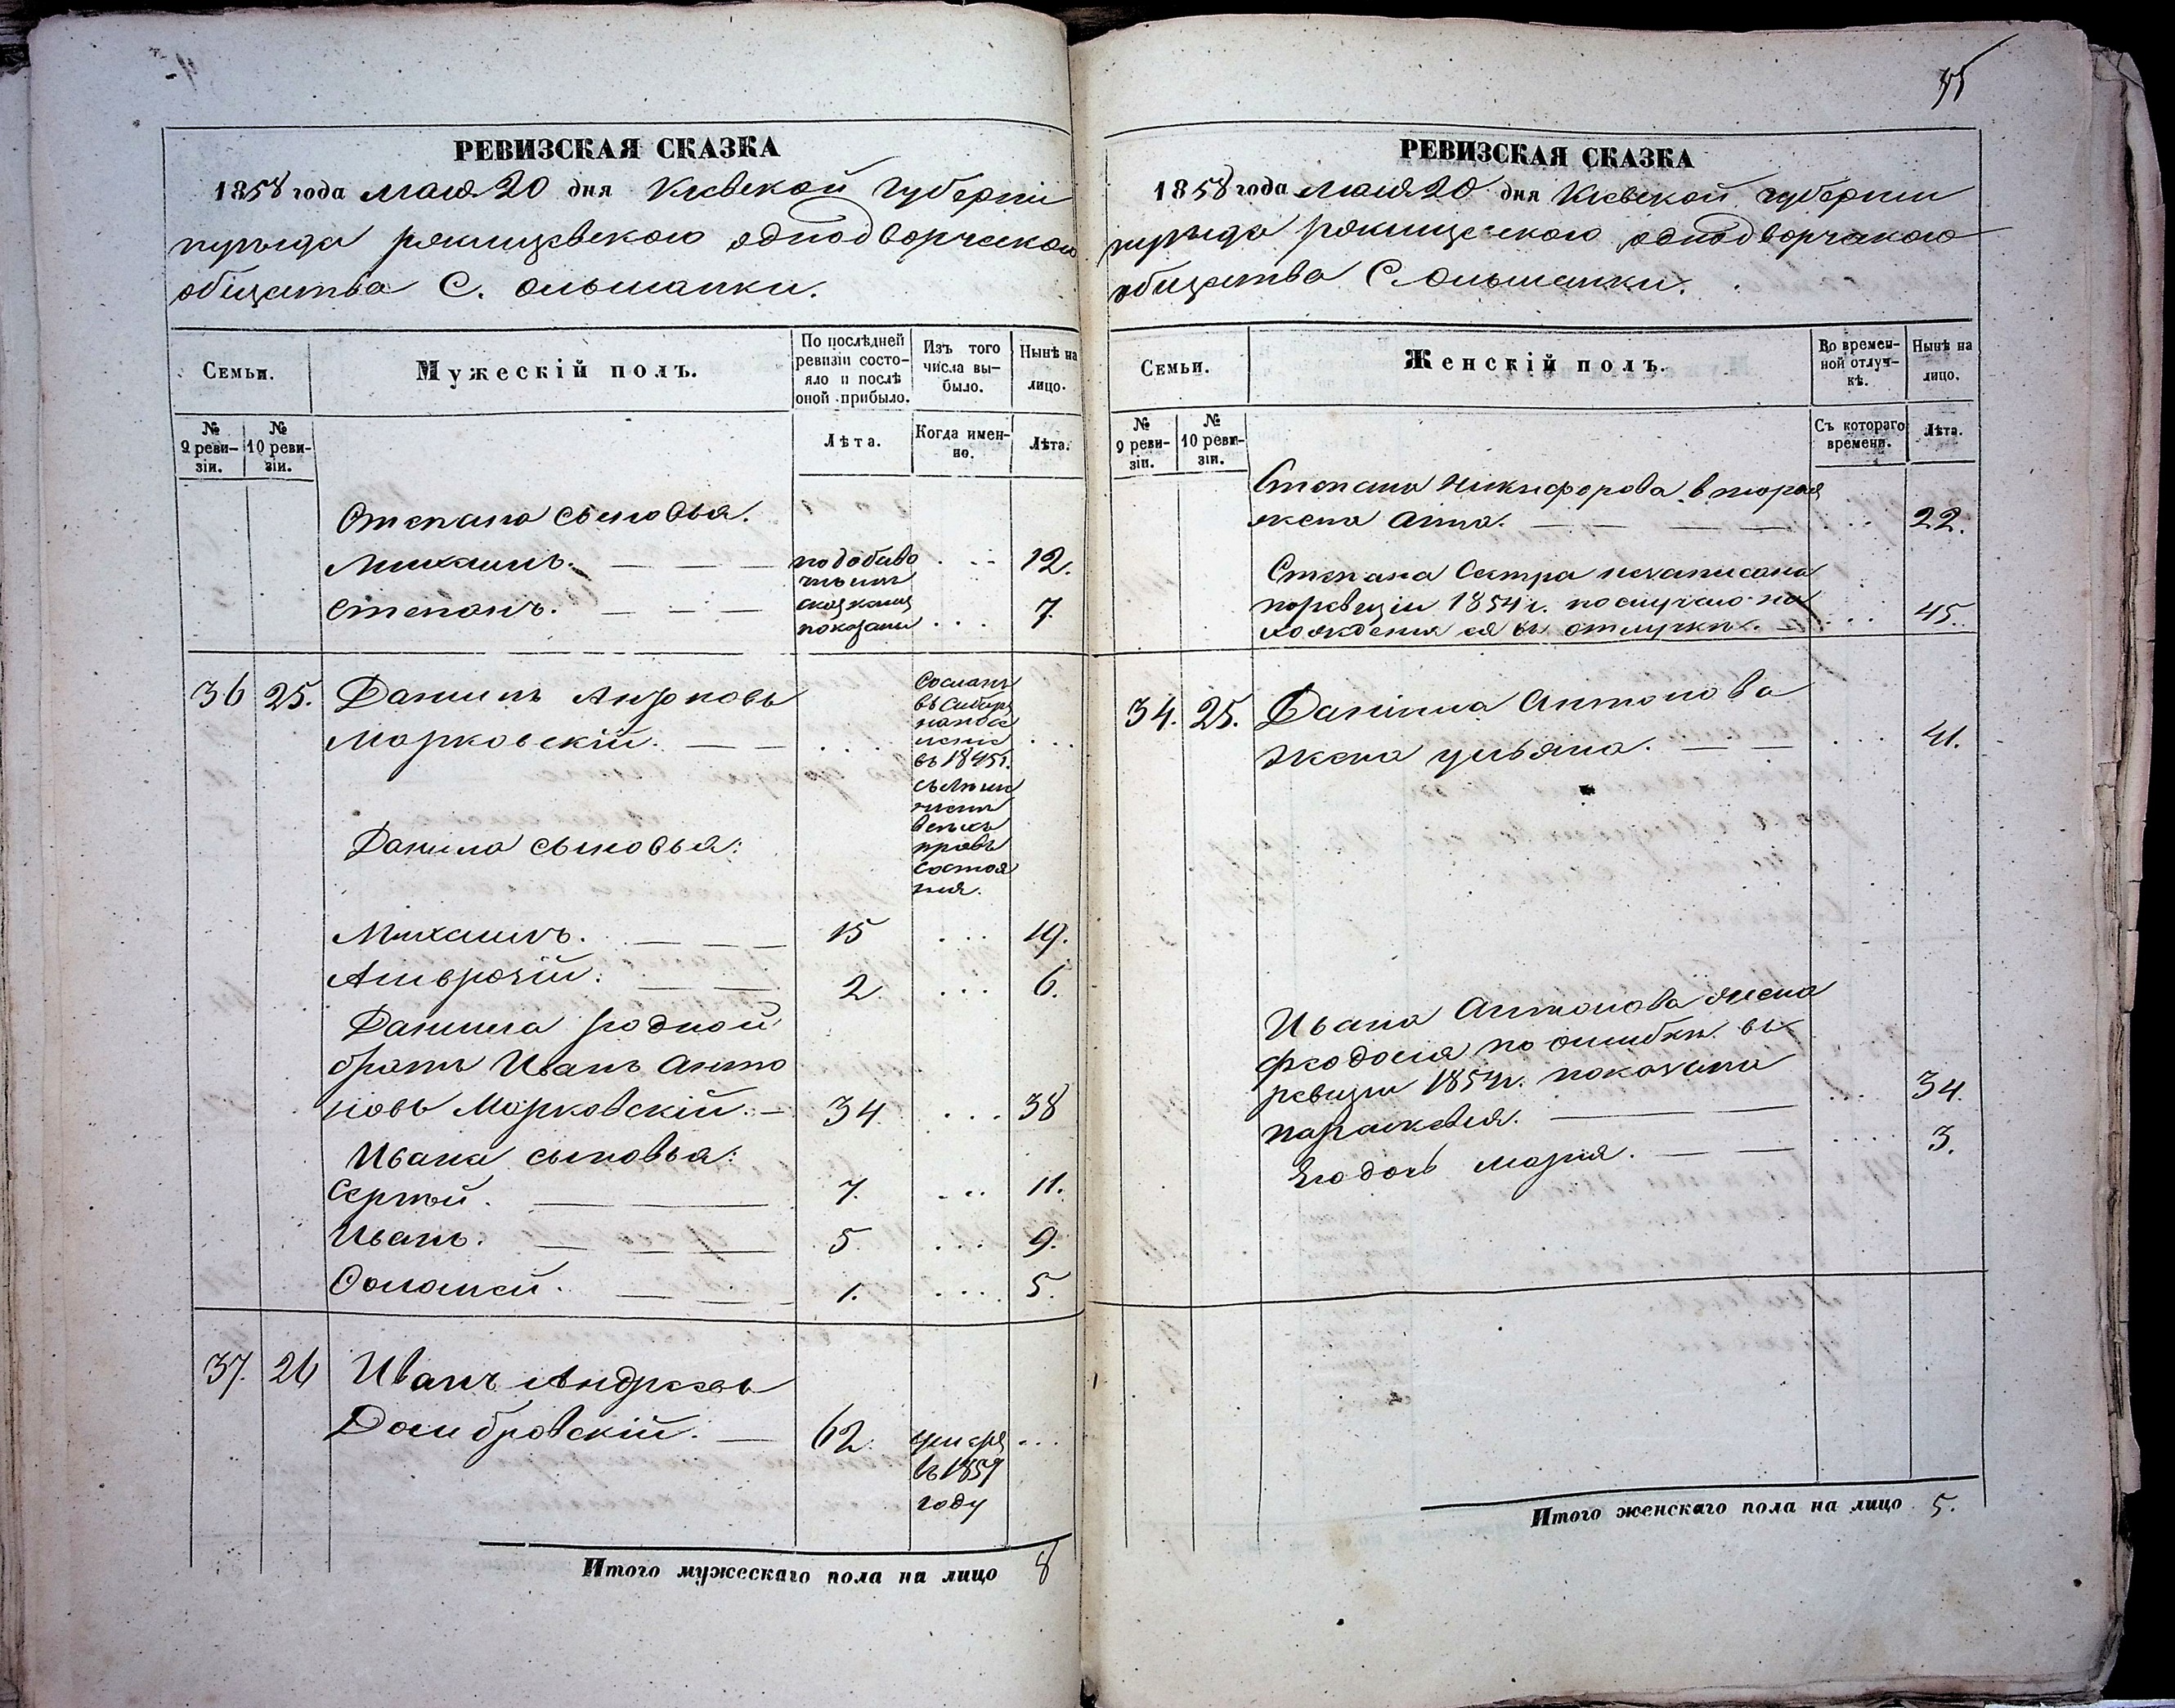 45
РЕВИЗСКАЯ СКАЗКА
1858 года мая 20 дня Кіевской Губерніи
ряжищевского однодворческого
общества С. ольшанки.
Семьи.
Мужескій полъ.
По послѣдней ревизіи состояло и послѣ оной прибыло.
Изъ того числа выбыло.
Нынѣ на лицо.
№ 9 ревизіи.
№ 10 ревизіи.
Лѣта.
Когда именно.
Лѣта.
Степана сыновья.
Михаилъ. 12.
Степанъ. 7.
показаны
36 25. Данилъ Антоновъ
Марковскій.
Сосланъ
въ Сибирь
на посе
леніе
въ 1845 г.
съ лише
ніемъ
всѣхъ
правъ
состоя
нія.
Данила сыновья:
Михаилъ. 15 19.
Амвросій. 2. 6.
Данила родной
братъ Иванъ Анто
новъ Марковскій. 34. 38
Ивана сыновья:
Сергѣй. 7. 11.
Иванъ. 5. 9.
1. 5.
37. 26 Иванъ Андреевъ
Домбровскій. 62. умеръ
въ 1857
году
Итого мужескаго пола на лицо 8
РЕВИЗСКАЯ СКАЗКА
1858 года мая 20 дня Кіевской губерніи
однодворческого
общества С. Ольшанки.
Семьи.
Женскій полъ.
Во временной отлучкѣ.
Нынѣ на лицо.
№ 9 ревизіи.
№ 10 ревизіи.
Съ котораго времени.
Лѣта.
Степана Никифорова вторая
жена Анна. 22.
Степана Сестра незаписана
по ревизіи 1854 г. по случаю на
хожденія ея въ отлучкѣ. 45.
34. 25. Данила Антонова
жена ульяна. 41.
Ивана Антонова жена
феодосія по ошибкѣ въ
ревизіи 1854 г. показана
параскевія. 34.
Его дочь Марія. 3.
Итого женскаго пола на лицо 5.